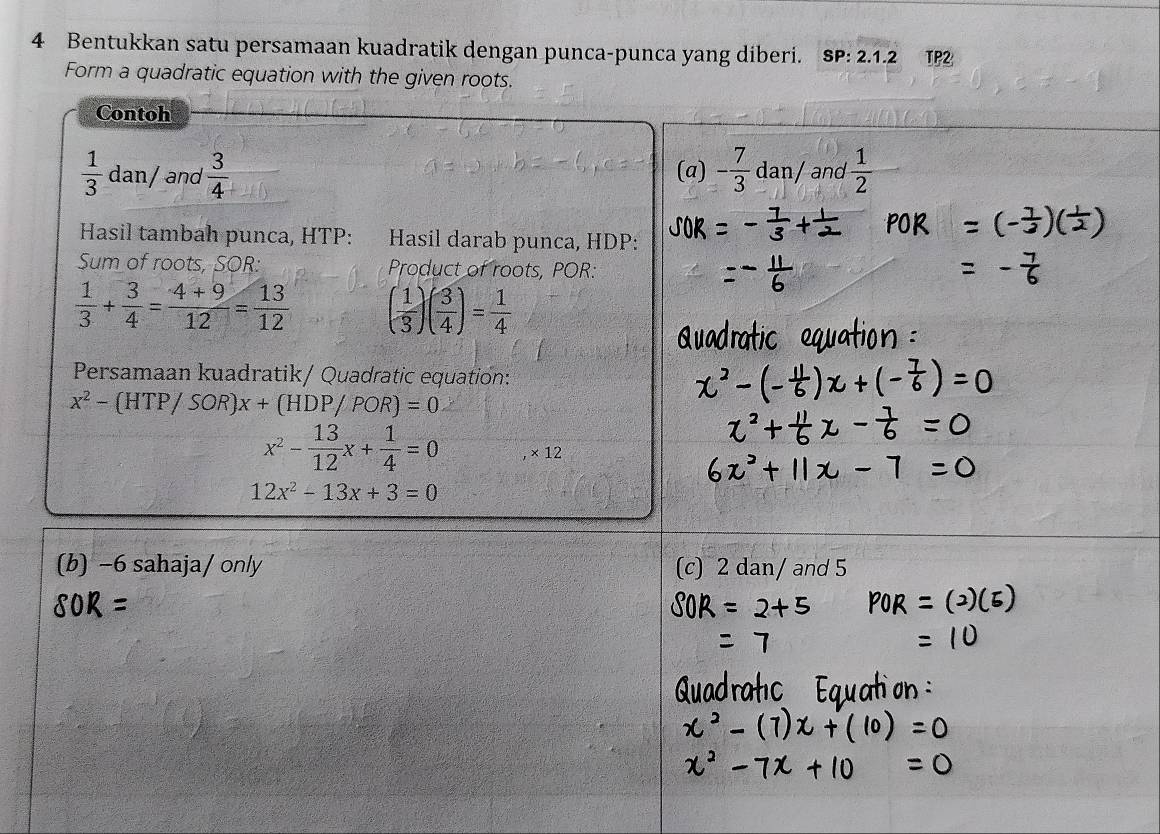 4 Bentukkan satu persamaan kuadratik dengan punca-punca yang diberi. SP: 2.1.2 TP2
Form a quadratic equation with the given roots.
Contoh
1/3 dan/ and 3/4
Hasil tambah punca, HTP: Hasil darab punca, HDP:
Sum of roots, SOR: Product of roots, POR:
1/3 + 3/4 = (4 + 9)/12 = 13/12 (1/3)(3/4) = 1/4
Persamaan kuadratik/ Quadratic equation:
x² − (HTP/ SOR)x + (HDP/ POR) = 0
x² − 13/12 x + 1/4 = 0 , × 12
12x² − 13x + 3 = 0
(a) −7/3 dan/ and 1/2
SOR = −7/3 + 1/2 POR = (−7/3)(1/2)
= −11/6 = −7/6
Quadratic equation :
x² − (−11/6)x + (−7/6) = 0
x² + 11/6 x − 7/6 = 0
6x² + 11x − 7 = 0
(b) −6 sahaja/ only
SOR =
(c) 2 dan/ and 5
SOR = 2 + 5 POR = (2)(5)
= 7 = 10
Quadratic Equation :
x² − (7)x + (10) = 0
x² − 7x + 10 = 0